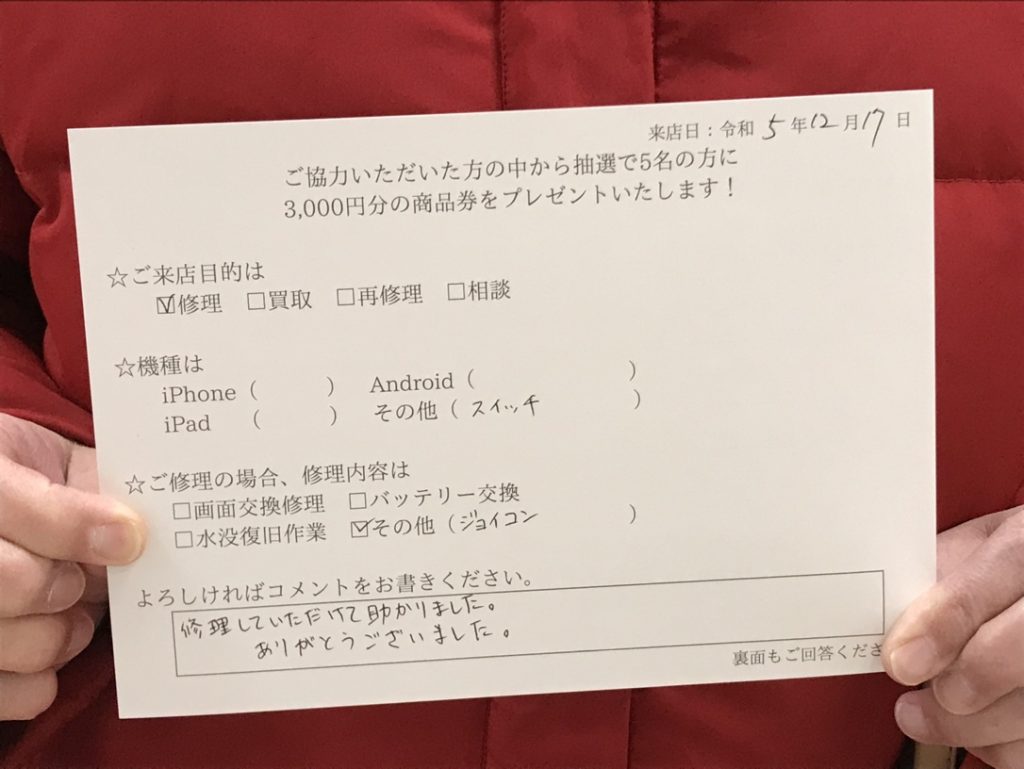 来店日：令和 5 年 12 月 17 日
ご協力いただいた方の中から抽選で5名の方に
3,000円分の商品券をプレゼントいたします！
☆ご来店目的は
☑修理 □買取 □再修理 □相談
☆機種は
iPhone（　　　） Android（　　　　　　　）
iPad （　　　） その他（ スイッチ　　　　）
☆ご修理の場合、修理内容は
□画面交換修理 □バッテリー交換
□水没復旧作業 ☑その他（ジョイコン　　　　）
よろしければコメントをお書きください。
修理していただけて助かりました。
ありがとうございました。
裏面もご回答くださ